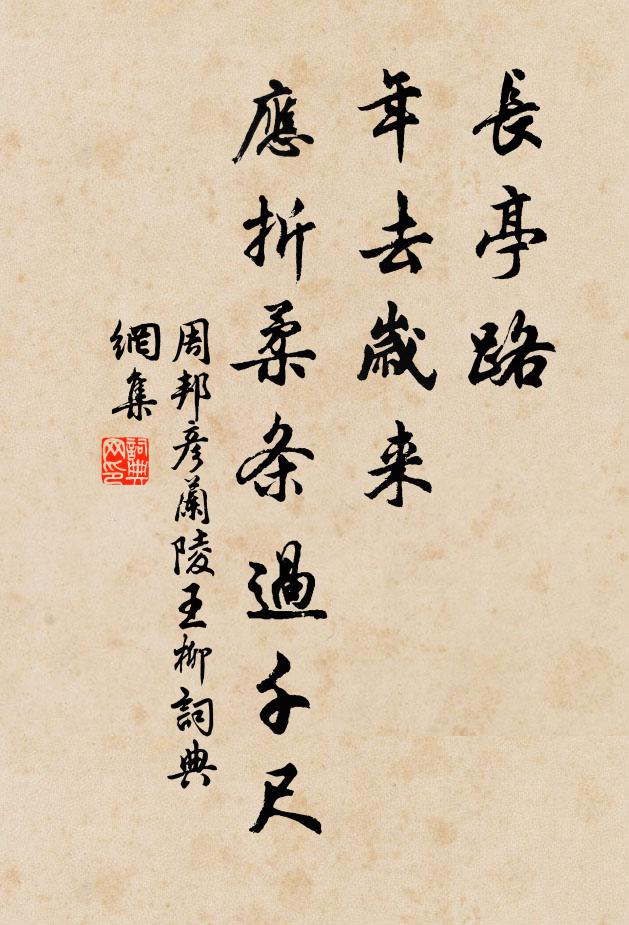 長亭路
年去歲来
應折柔条過千尺
周邦彦蘭陵王柳詞典
網集
詞典
网印